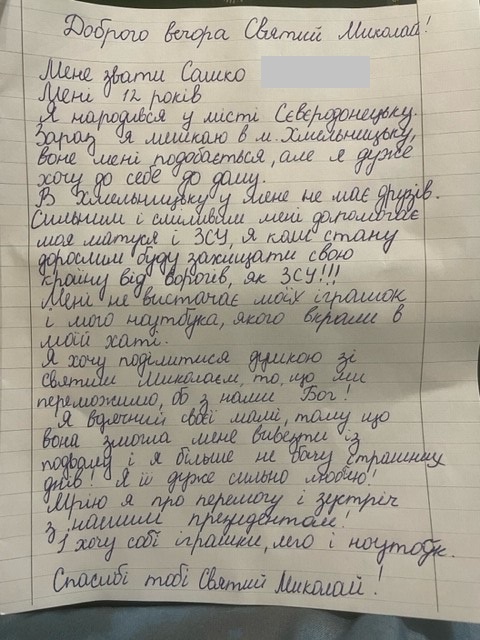 Доброго вечора Святий Миколай!
Мене звати Сашко
Мені 12 років
Я народився у місті Сєвєродонецьку.
Зараз я мешкаю в м. Хмельницьку,
воне мені подобається, але я дуже
хочу до себе до дому.
В Хмельницьку у мене не має друзів.
Сильним і сміливим мені допомогає
моя матуся і ЗСУ, я коли стану
дорослим буду захищати свою
країну від ворогів, як ЗСУ!!!
Мені не вистачає моїх іграшок
і мого ноутбука, якого вкрали в
моїй хаті.
Я хочу поділитися думкою зі
святим Миколаєм, то, що ми
переможимо, бо з нами Бог!
Я вдячний своєї мамі, тому що
вона змогла мене вивезти із
подвалу і я більше не бачу страшних
днів! Я її дуже сильно люблю!
Мрію я про перемогу і зустріч
з нашим президентом!
І хочу собі іграшки, лего і ноутбук.
Спасибі тобі Святий Миколай!